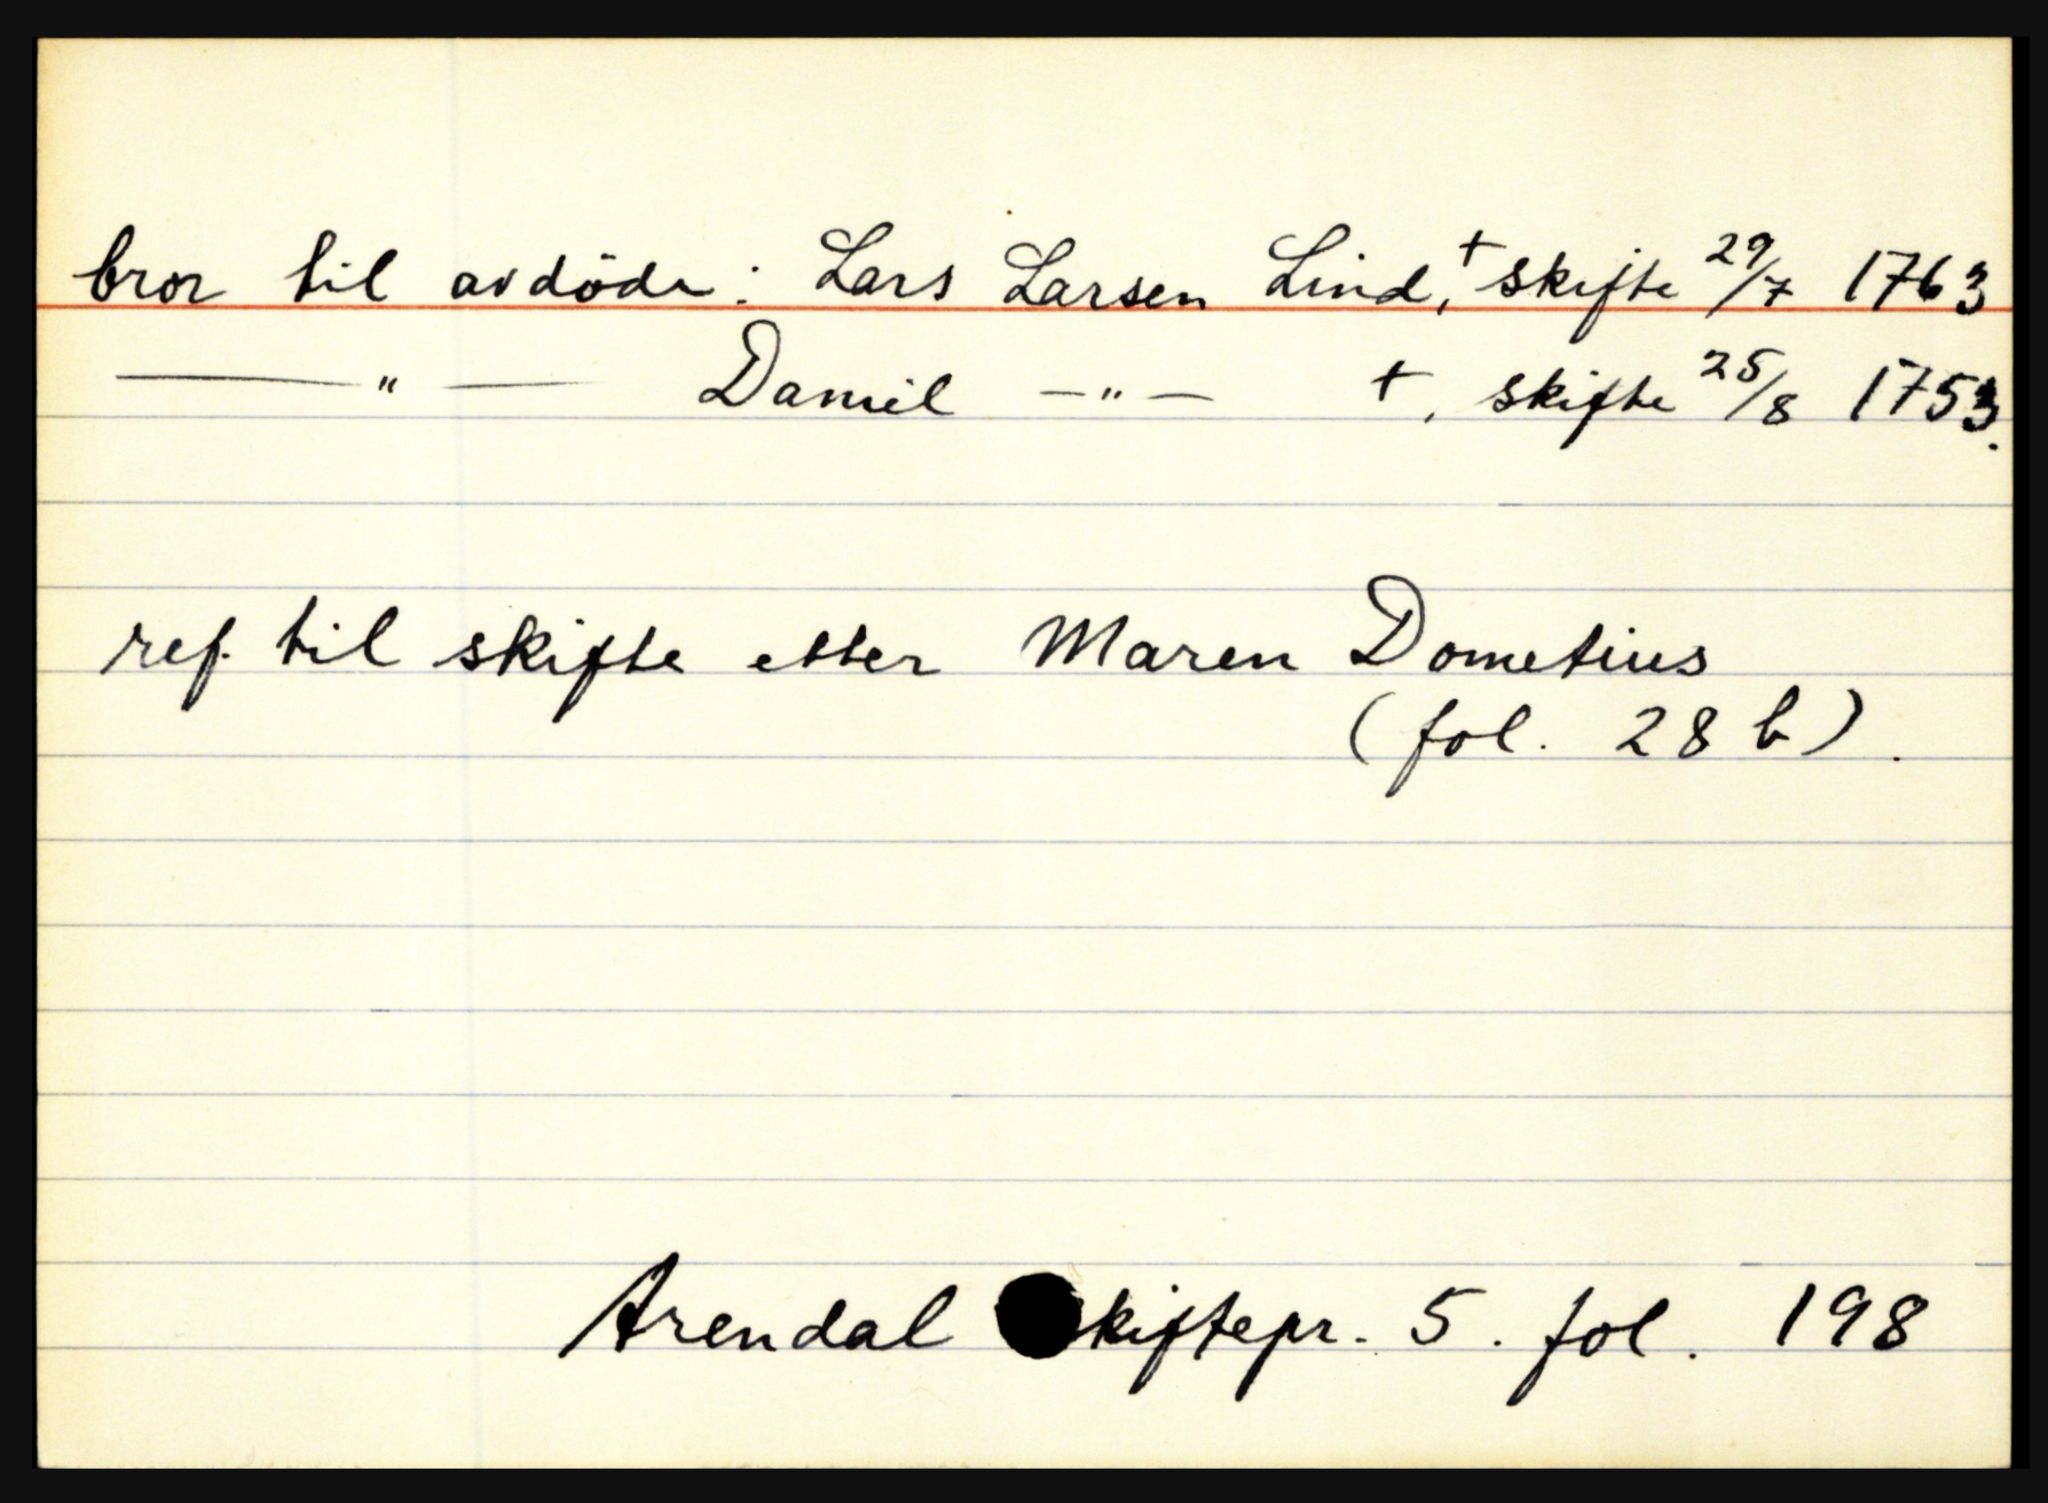 bror til avdöde: Lars Larsen Lind, + skifte 29/7 1763
— " — Daniel — " — +, skifte 25/8 1753.
ref. til skifte etter Maren Dometius
(fol. 28 b).
Arendal skiftepr. 5. fol. 198